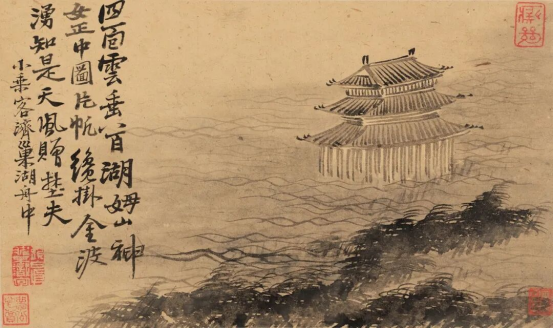 四面雲垂八百湖姆山神
女正中圖片帆纔掛金波
湧知是天風贈埜夫
小乘客濟巢湖舟中